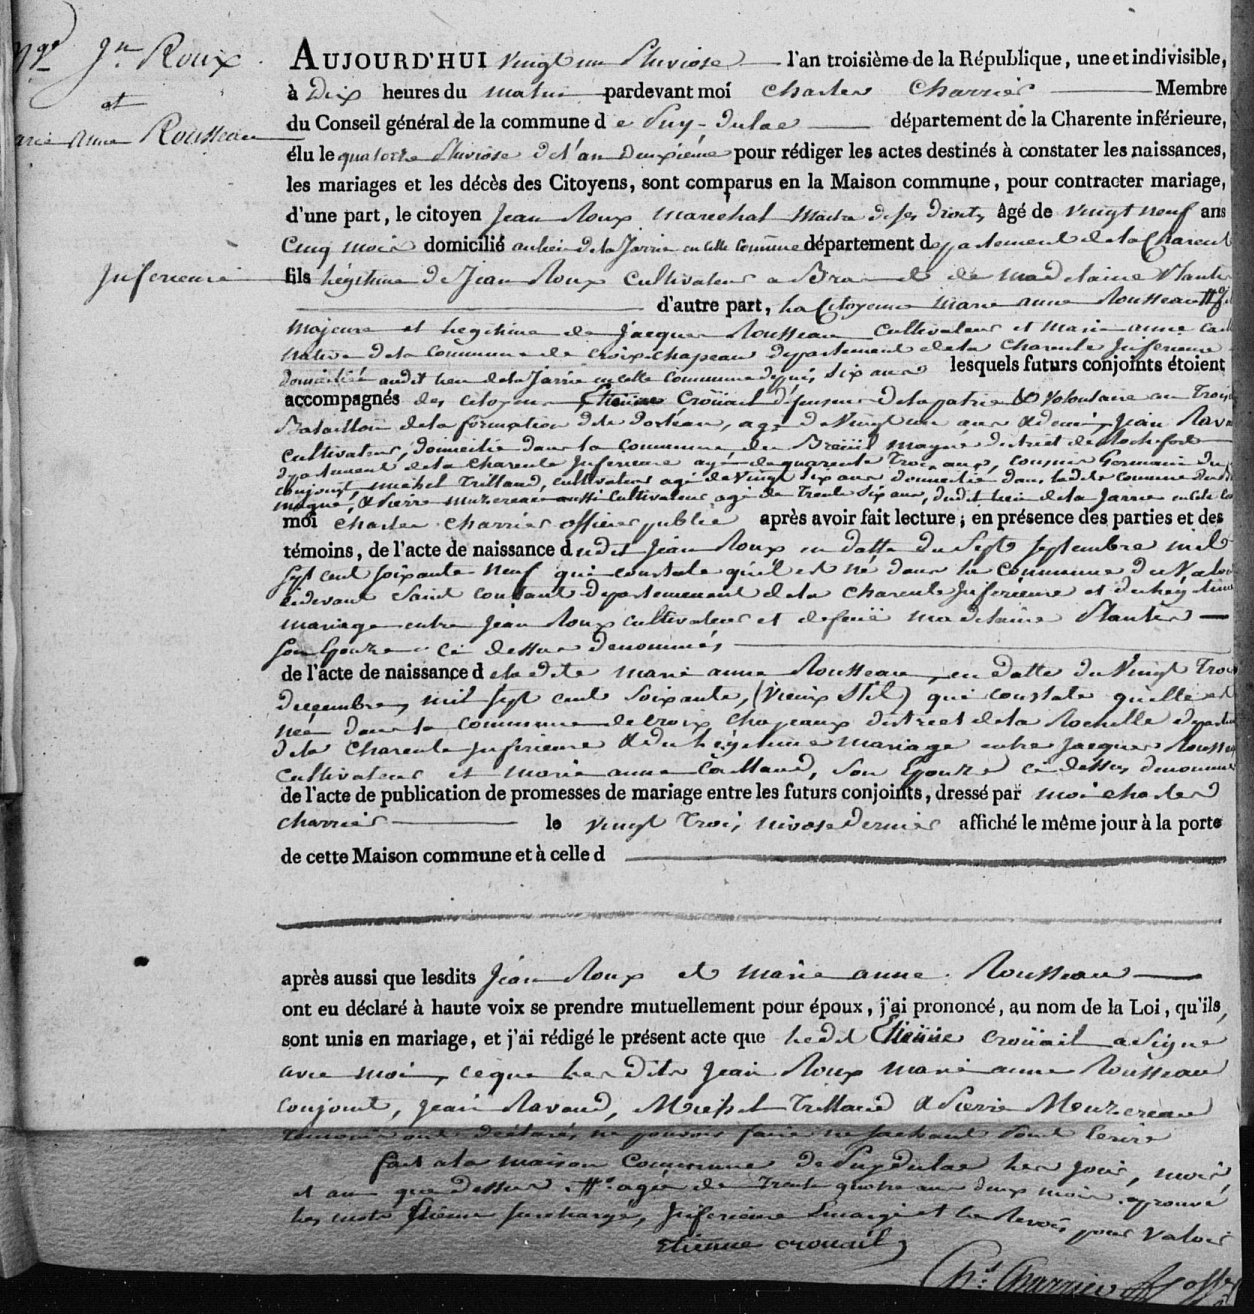 Jn Roux
et
anne Rousseau
AUJOURD'HUI vingt un Pluviose l'an troisième de la République, une et indivisible,
à Dix heures du matin pardevant moi Charles Charrier Membre
du Conseil général de la commune d e Puy-Dulac département de la Charente inférieure,
élu le quatorze Pluviose de l'an deuxième pour rédiger les actes destinés à constater les naissances,
les mariages et les décès des Citoyens, sont comparus en la Maison commune, pour contracter mariage,
d'une part, le citoyen Jean Roux marechal Maitre de ses Droits âgé de vingt neuf ans
Cinq mois domicilié au lieu de la Jarrie en cette Commune département departement de la Charente
Inferieure fils legitime de Jean Roux Cultivateur a et de madelaine Plantier
d'autre part, la Citoyenne marie anne Rousseau ##
majeure et legitime de Jacques Rousseau Cultivateur et Marie anne
native de la Commune de Croix-Chapeau departement de la Charente Inferieure
domiciliée audit lieu de la Jarrie en cette Commune depuis six ans lesquels futurs conjoints étoient
accompagnés des citoyens Etienne Croüail deffenseur de la patrie & Volontaire au Trois
Bataillon de la formation de la dordeau, age de Vingt un ans & demi, Jean Ravaud
cultivateur, domicilié dans la Commune du Breüil magné district de Rochefort
departement de la Charente Inferieure agé de quarente Trois ans, cousin Germain du
conjoint, michel Trillaud, cultivateur agé de Vingt six ans domicilié dans ladite Commune du
magné, & Pierre Muzereau aussi Cultivateur agé de Trente Six ans, dudit lieu de la Jarrie en cette
moi Charles Charrier officier public après avoir fait lecture ; en présence des parties et des
témoins, de l'acte de naissance d udit Jean Roux en datte du Sept Septembre mil
Sept cent soixante neuf qui constate qu'il est né dans la Commune du
cidevant Saint coutant departemenent de la Charente Inferieure et du legitime
mariage entre Jean Roux cultivateur et defeüe madelaine Plantier
Son Epouze ci dessus denommés
de l'acte de naissance d eladite marie anne Rousseau, en datte du Vingt Trois
decembre, mil sept cent soixante, (Vieux Stil) qui constate qu'elle est
née dans la Commune de Croix Chapeaux district de la Rochelle
de la Charente Inferieure & du legitime mariage entre Jacques Rousseau
Cultivateur et marie anne Caillaud, Son Epouze ci dessus denommés
de l'acte de publication de promesses de mariage entre les futurs conjoints, dressé par moi Charles
Charrier le vingt Trois nivose dernier affiché le même jour à la porte
de cette Maison commune et à celle d
après aussi que lesdits Jean Roux et marie anne Rousseau
ont eu déclaré à haute voix se prendre mutuellement pour époux, j'ai prononcé, au nom de la Loi, qu'ils
sont unis en mariage, et j'ai rédigé le présent acte que ledit Etienne Croüail a Signe
avec moi, ce que les dits Jean Roux marie anne Rousseau
conjoint, Jean Ravaud, Michel Trillaud & Pierre Muzereau
temoins ont déclarés ne pouvoir faire ne sachant
fait a la maison Commune de Puydulac les jour, mois,
et an que dessus. ## agée de Trente quatre ans deux mois approuvé
les mots Etienne surchargé, Inferieure Emargé et le Renvoi pour Valoir
Etienne crouail
Chs Charrier